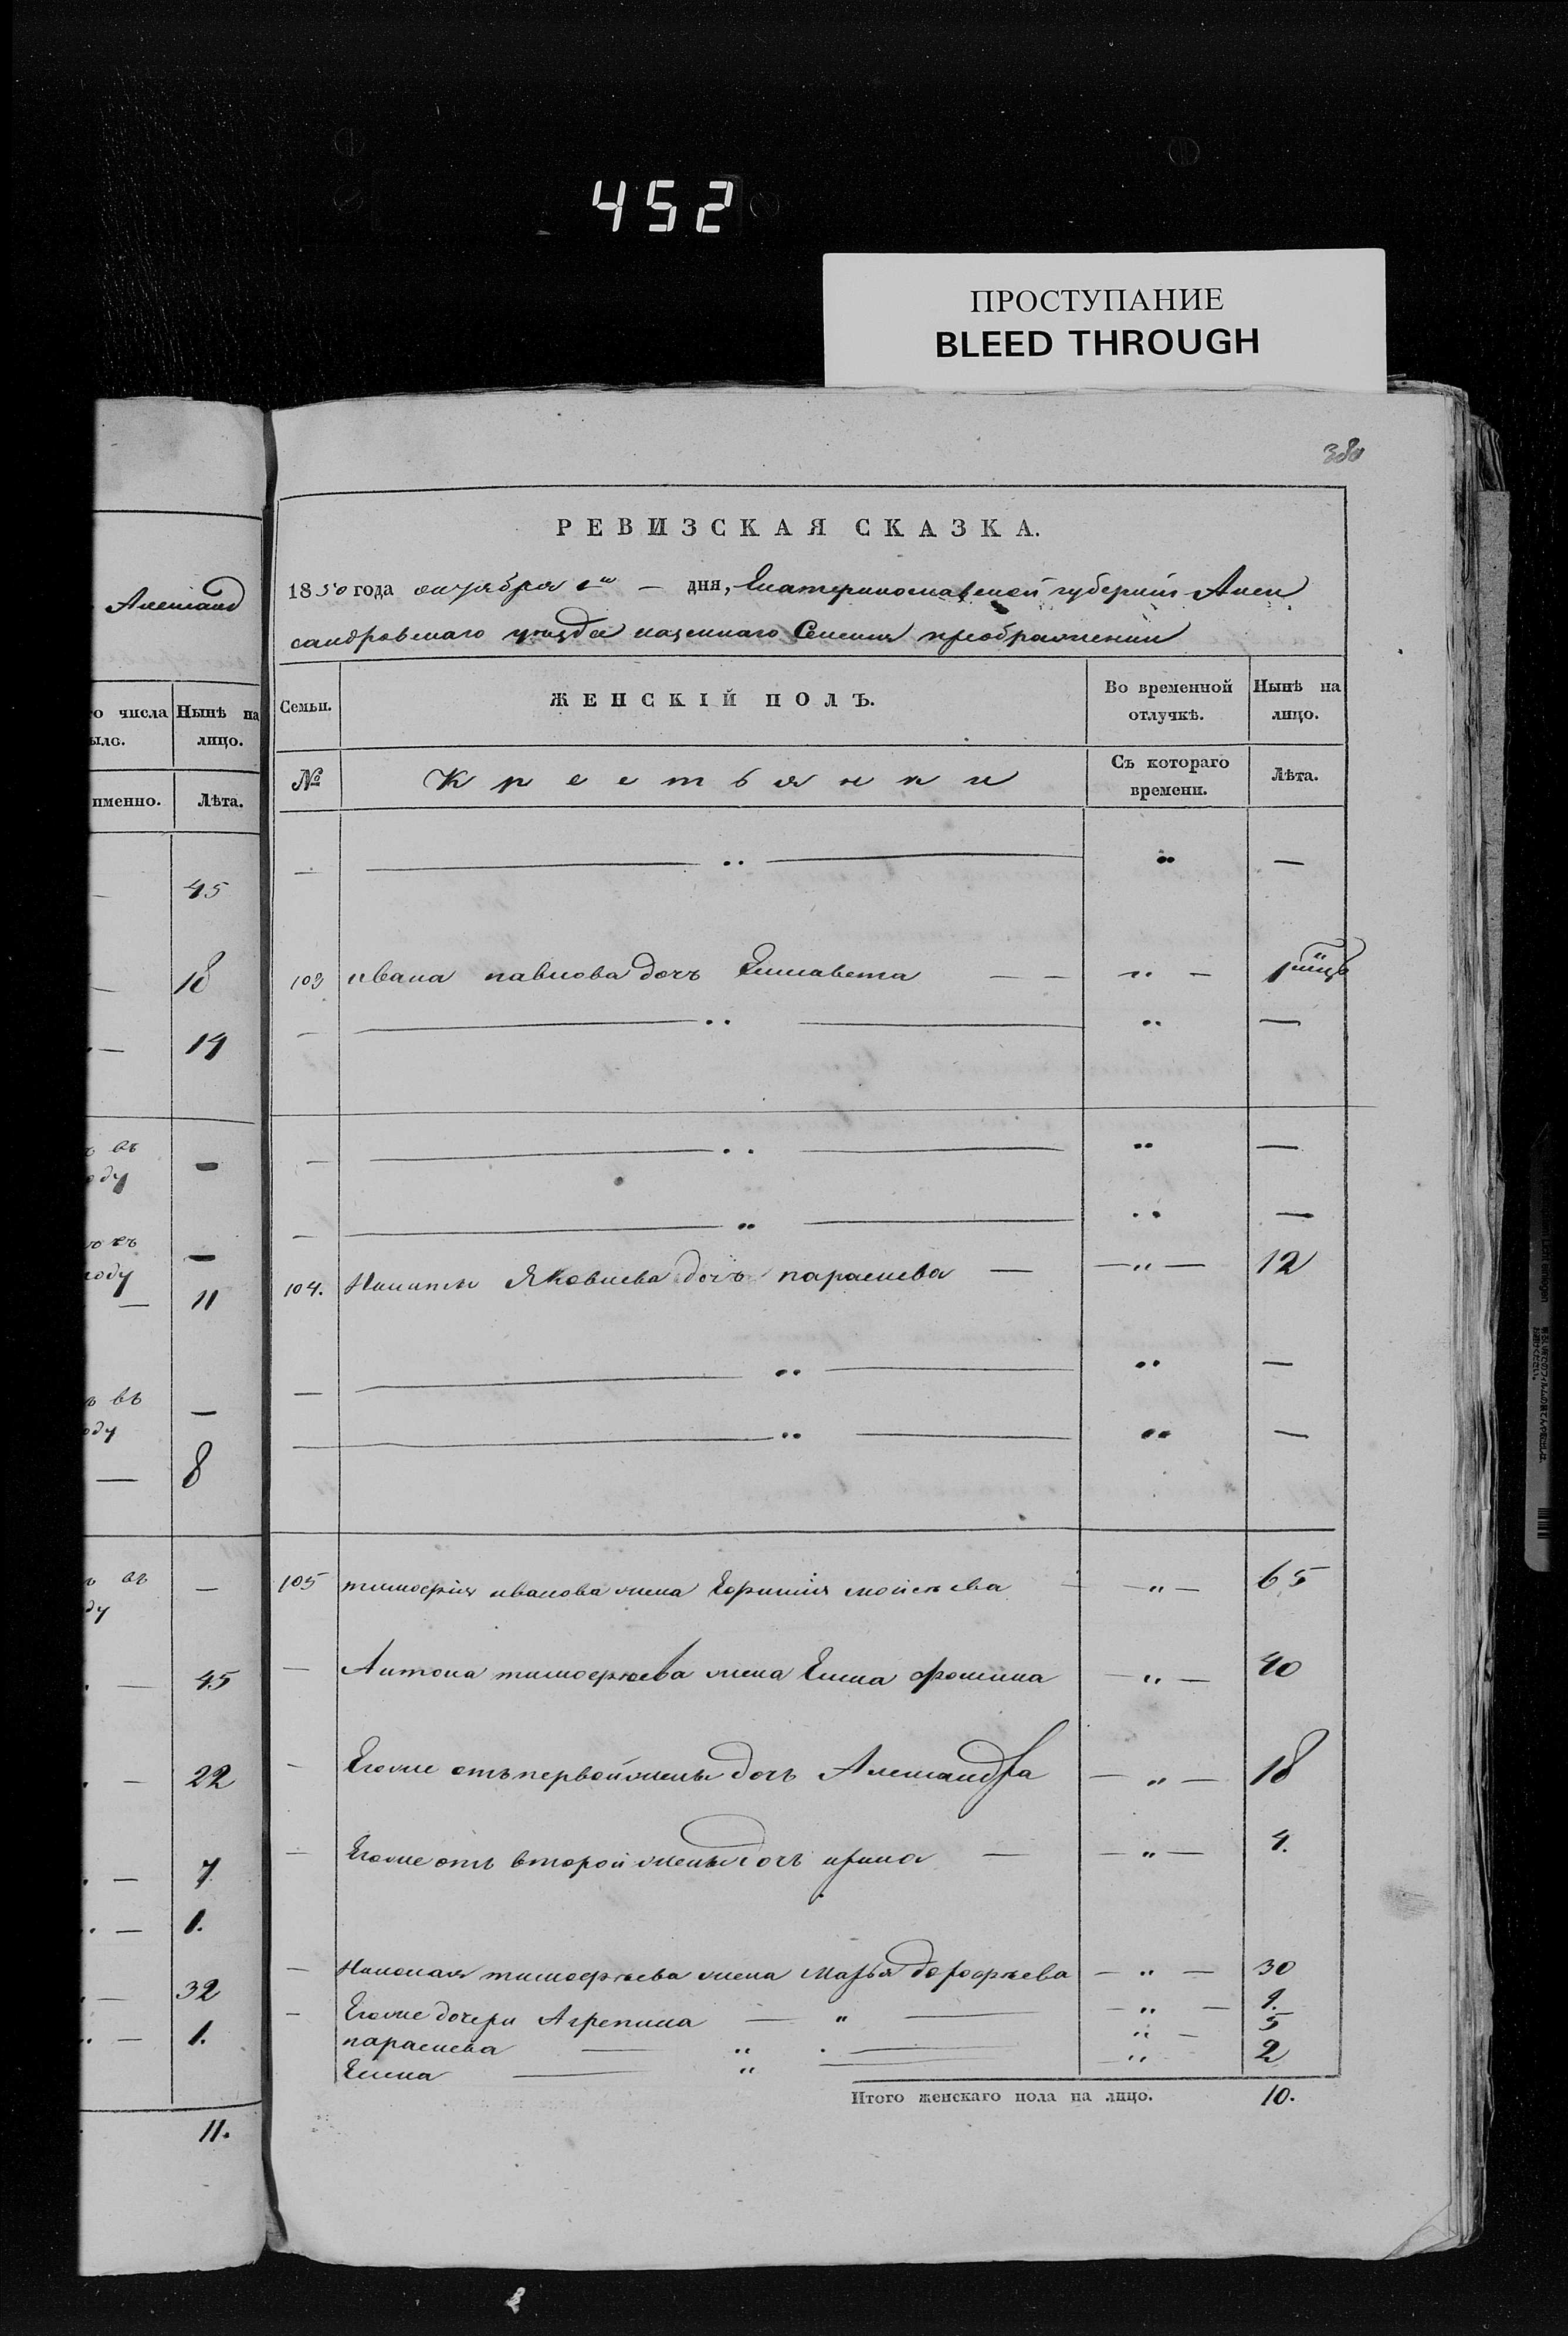 452
ПРОСТУПАНИЕ
BLEED THROUGH
380
Александ
го числа
было.
Нынѣ на
лицо.
именно.
Лѣта.
— 45
— 18
— 14
въ
оду —
оду —
— 11
ъ въ
оду —
— 8
въ
ду —
— 45
— 22
— 7
— 1.
— 32
— 1.
11.
РЕВИЗСКАЯ СКАЗКА.
1850 года октября 1го — дня, Екатеринославской губернии Алек
сандровскаго уезда казеннаго Селения преображенки
Семьи. ЖЕНСКІЙ ПОЛЪ. Во временной отлучкѣ. Нынѣ на лицо.
№ Крестьянки Съ котораго времени. Лѣта.
— — „ — „ —
103 ивана павлова дочь Елисавета — — „ —
— — „ — „ —
— — „ — „ —
— — „ — „ —
104. Никиты Яковлева дочь параскева — — „ — 12
— — „ — „ —
— — „ — „ —
105 тимофия иванова жена Евфимия мойсеева — — „ — 65
— Антона тимофеева жена Елена фомина — „ — 40
— Егоже отъ первой жены дочь Александра — „ — 18
— Егоже отъ второй жены дочь ирина — — „ — 4.
— Николая тимофеева жена Марья дорофеева — „ — 30
— Егоже дочери Агрепина — „ — — „ — 9.
параскева — „ — „ — 5
Елена — „ — „ 2
Итого женскаго пола на лицо. 10.